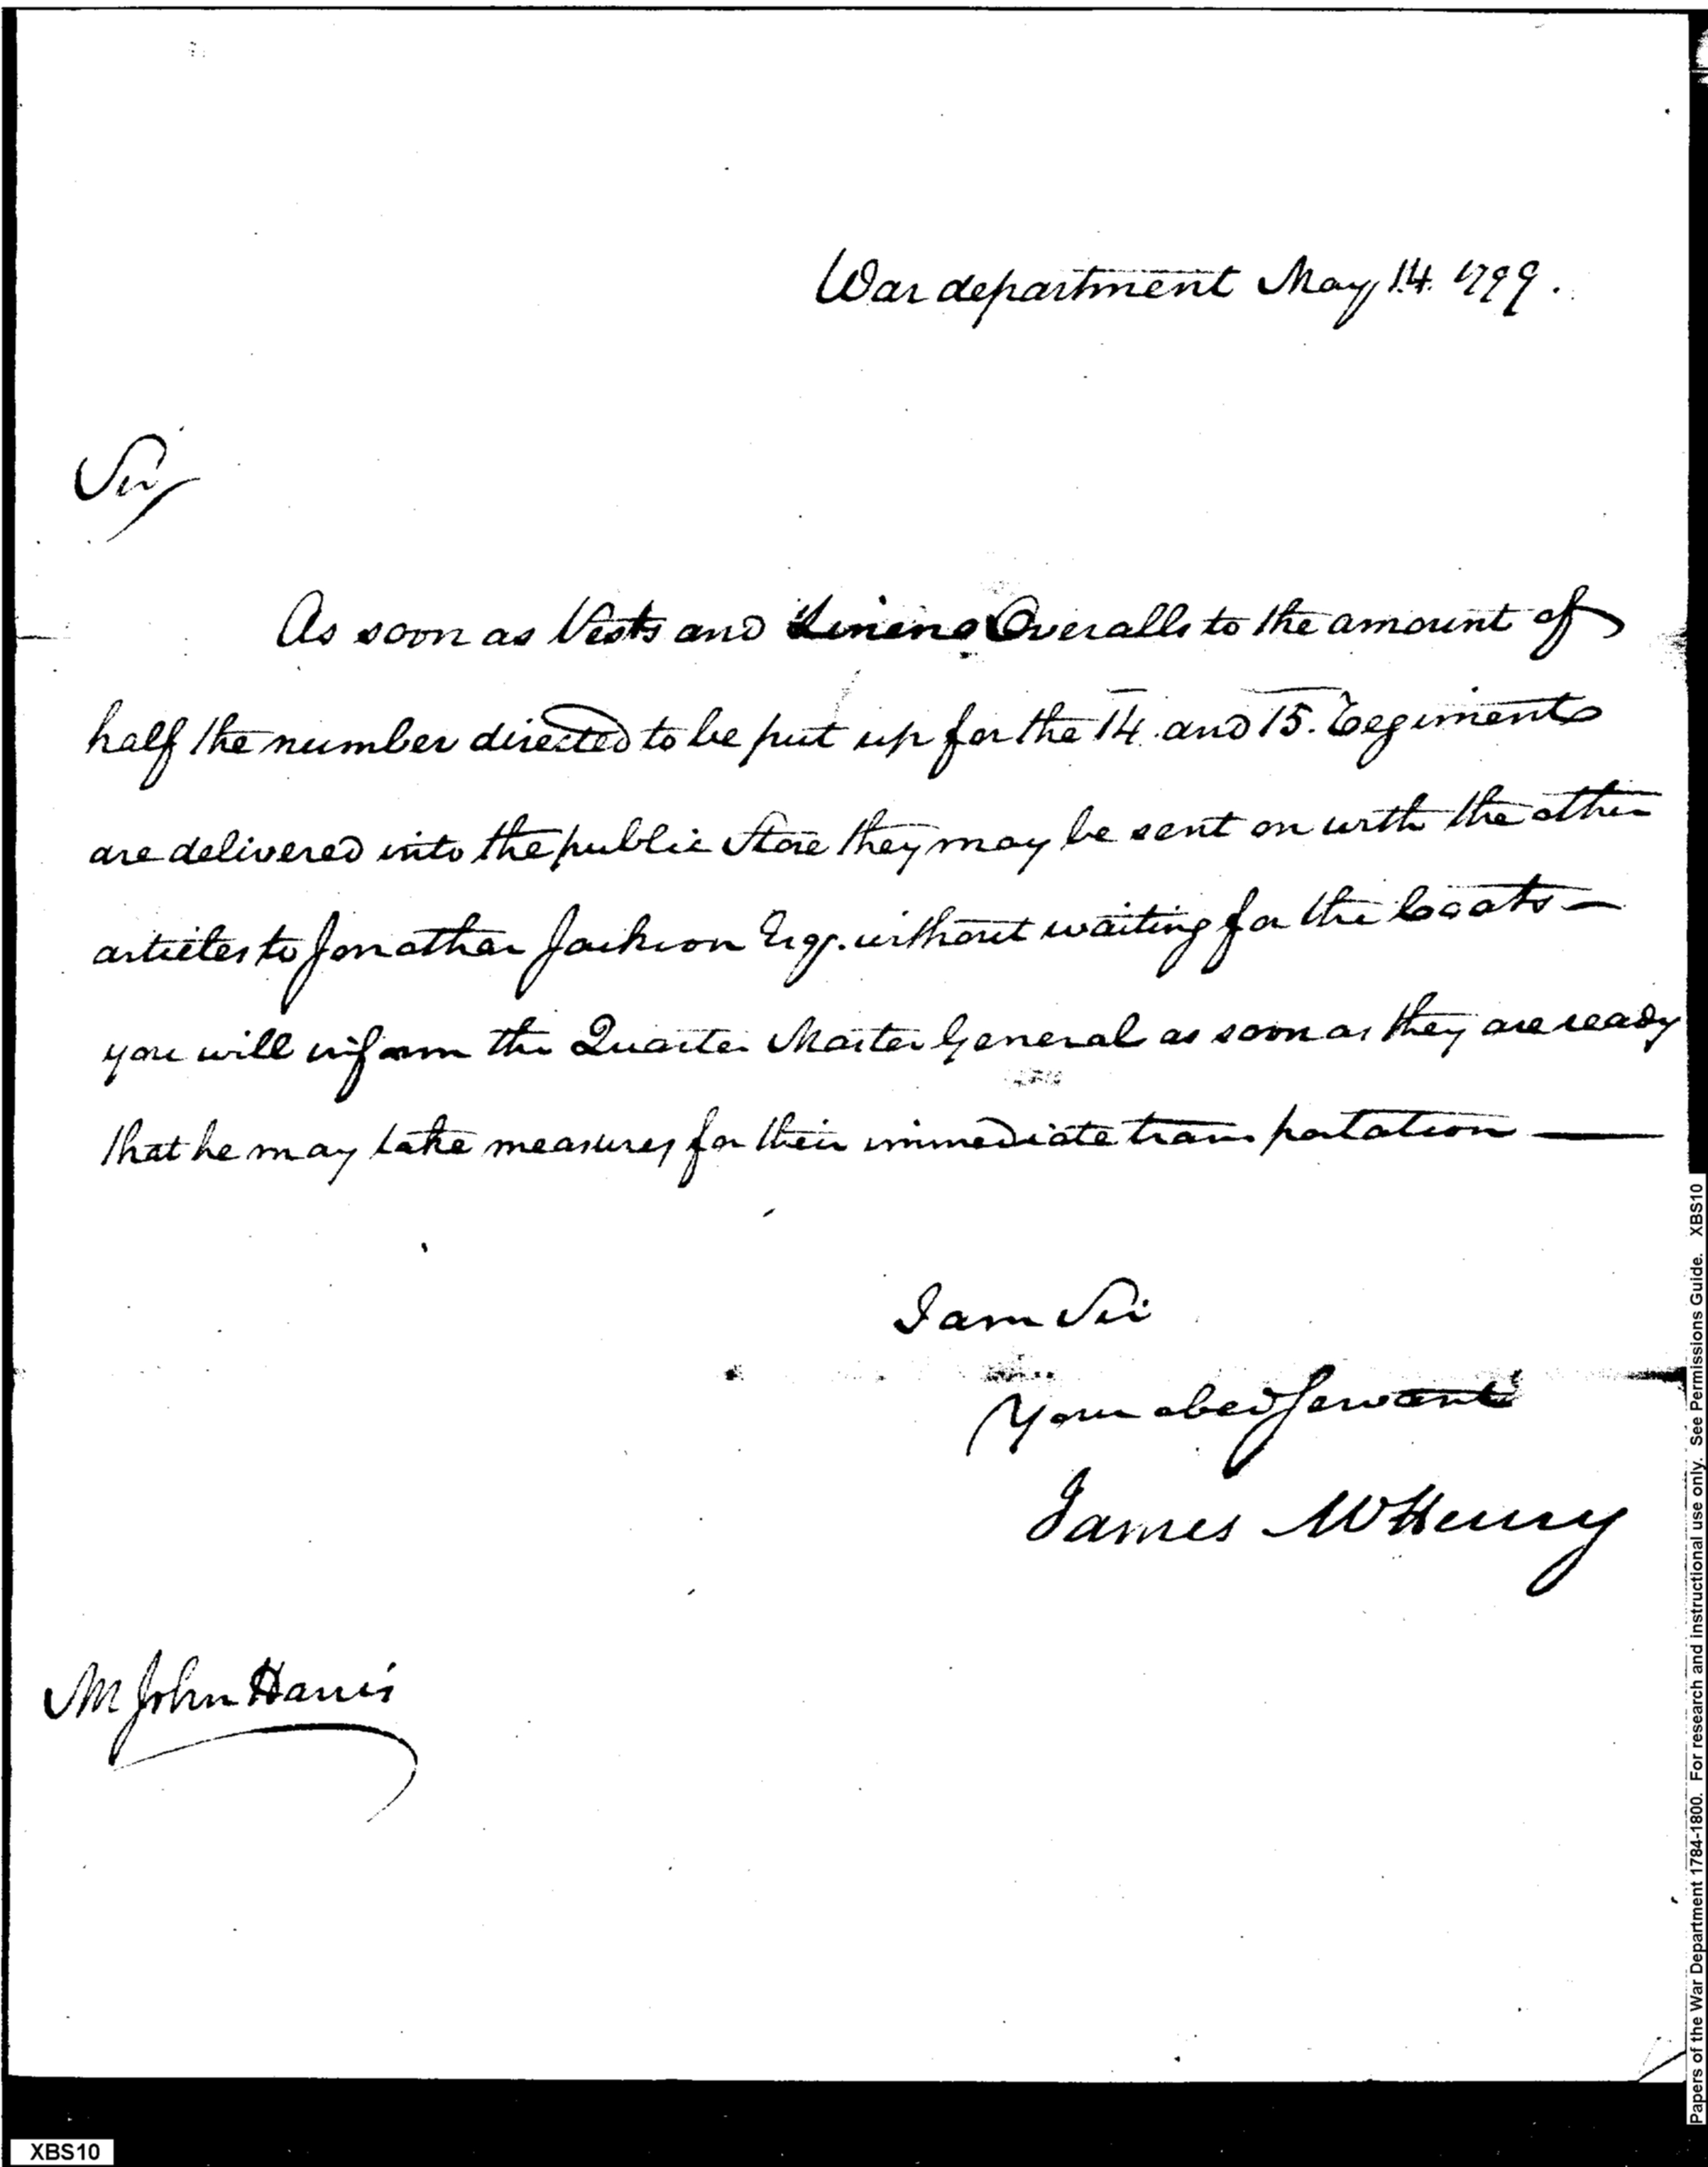 War department May 14. 1799.
Sir
As soon as Vests and Linen Overalls to the amount of
half the number directed to be put up for the 14. and 15. Regiments
are delivered into the public Store they may be sent on with the other
articles to Jonathan Jackson Esqr. without waiting for the Coats —
you will inform the Quarter Master General as soon as they are ready
that he may take measures for their immediate transportation —
I am Sir
Your obed Servant
James McHenry
Mr John Harris
Papers of the War Department 1784-1800. For research and instructional use only. See Permissions Guide. XBS10
XBS10